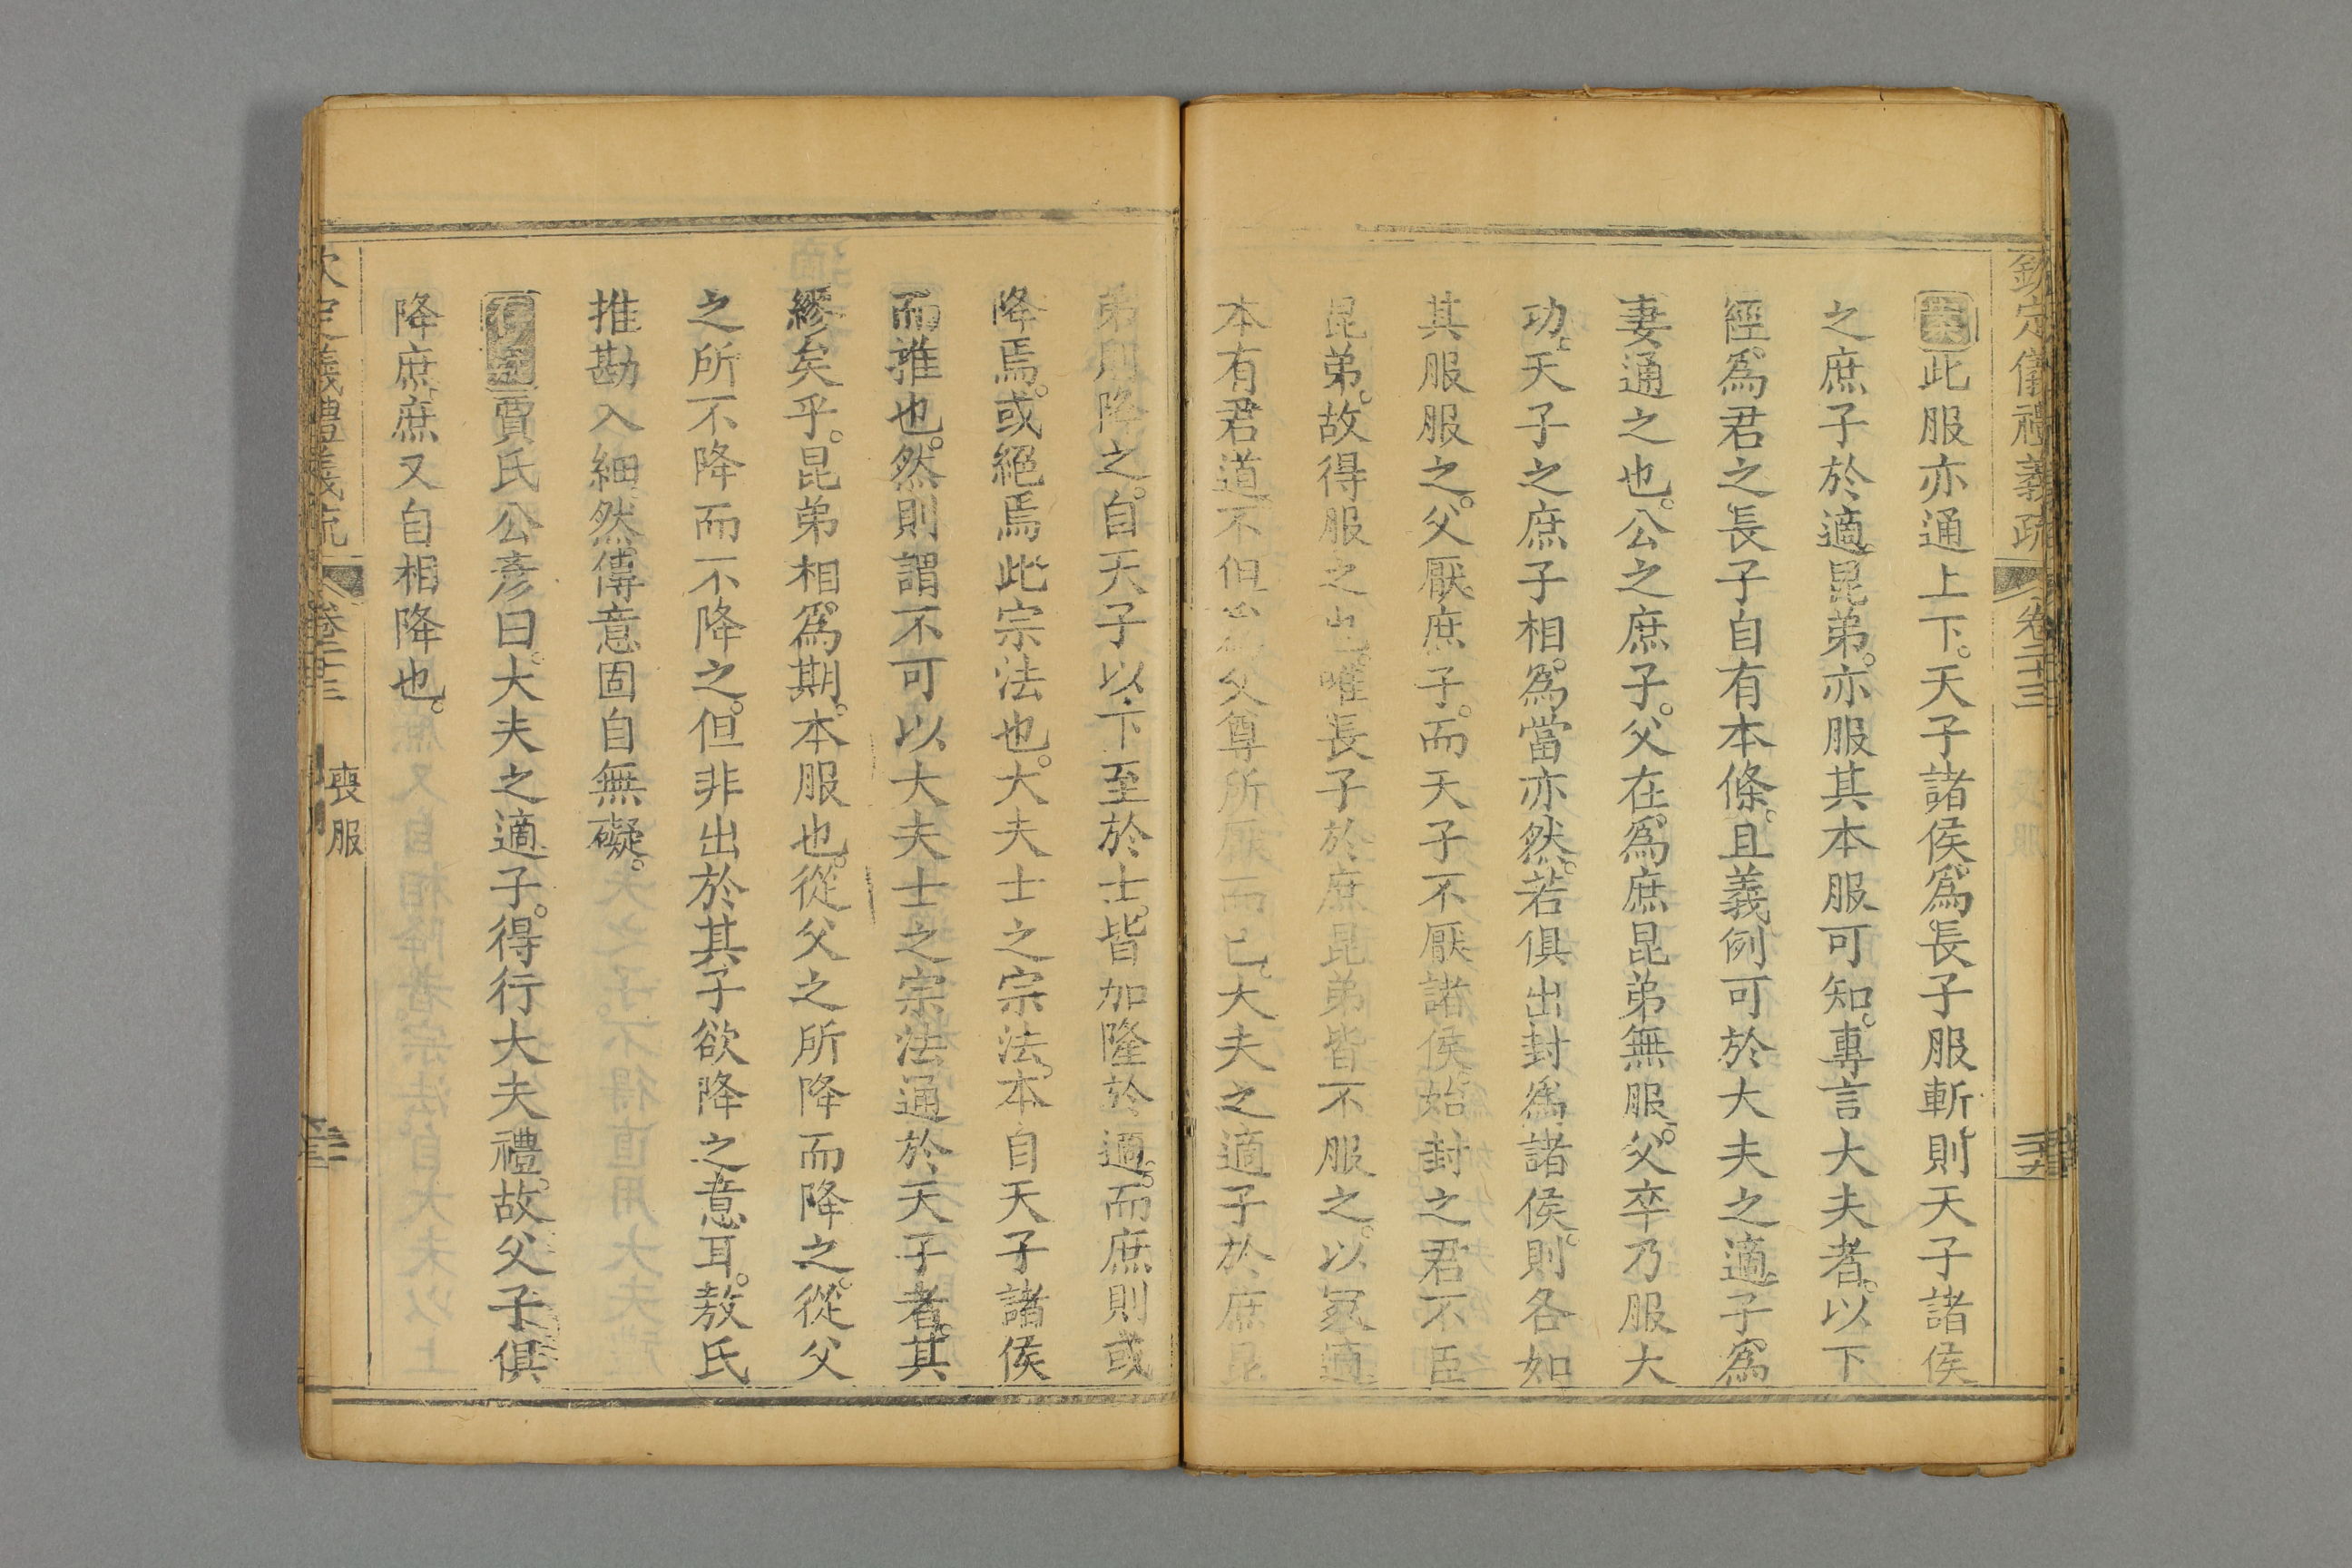 欽定儀禮義疏 卷二十三
案此服亦通上下。天子諸侯爲長子服斬則天子諸侯
之庶子於適昆弟。亦服其本服可知。專言大夫者。以下
經爲君之長子自有本條。且義例可於大夫之適子爲
妻通之也。公之庶子。父在。爲庶昆弟無服。父卒乃服大
功。天子之庶子相爲當亦然。若俱出封爲諸侯。則各如
其服服之。父厭庶子。而天子不厭諸侯始封之君不臣
昆弟。故得服之也。唯長子於庶昆弟皆不服之。以冢適
本有君道不但父尊所厭而已。大夫之適子於庶昆
弟則降之。自天子以下至於士。皆加隆於適。而庶則或
降焉。或絕焉此宗法也。大夫士之宗法。本自天子諸侯
而推也。然則謂不可以大夫士之宗法通於天子者。其
繆矣乎。昆弟相爲期。本服也。從父之所降而降之。從父
之所不降而不降之。但非出於其子欲降之意耳。敖氏
推勘入細然傳意固自無礙。
賈氏公彥曰。大夫之適子。得行大夫禮。故父子俱
降庶。庶又自相降也。
欽定儀禮義疏 卷二十三 喪服